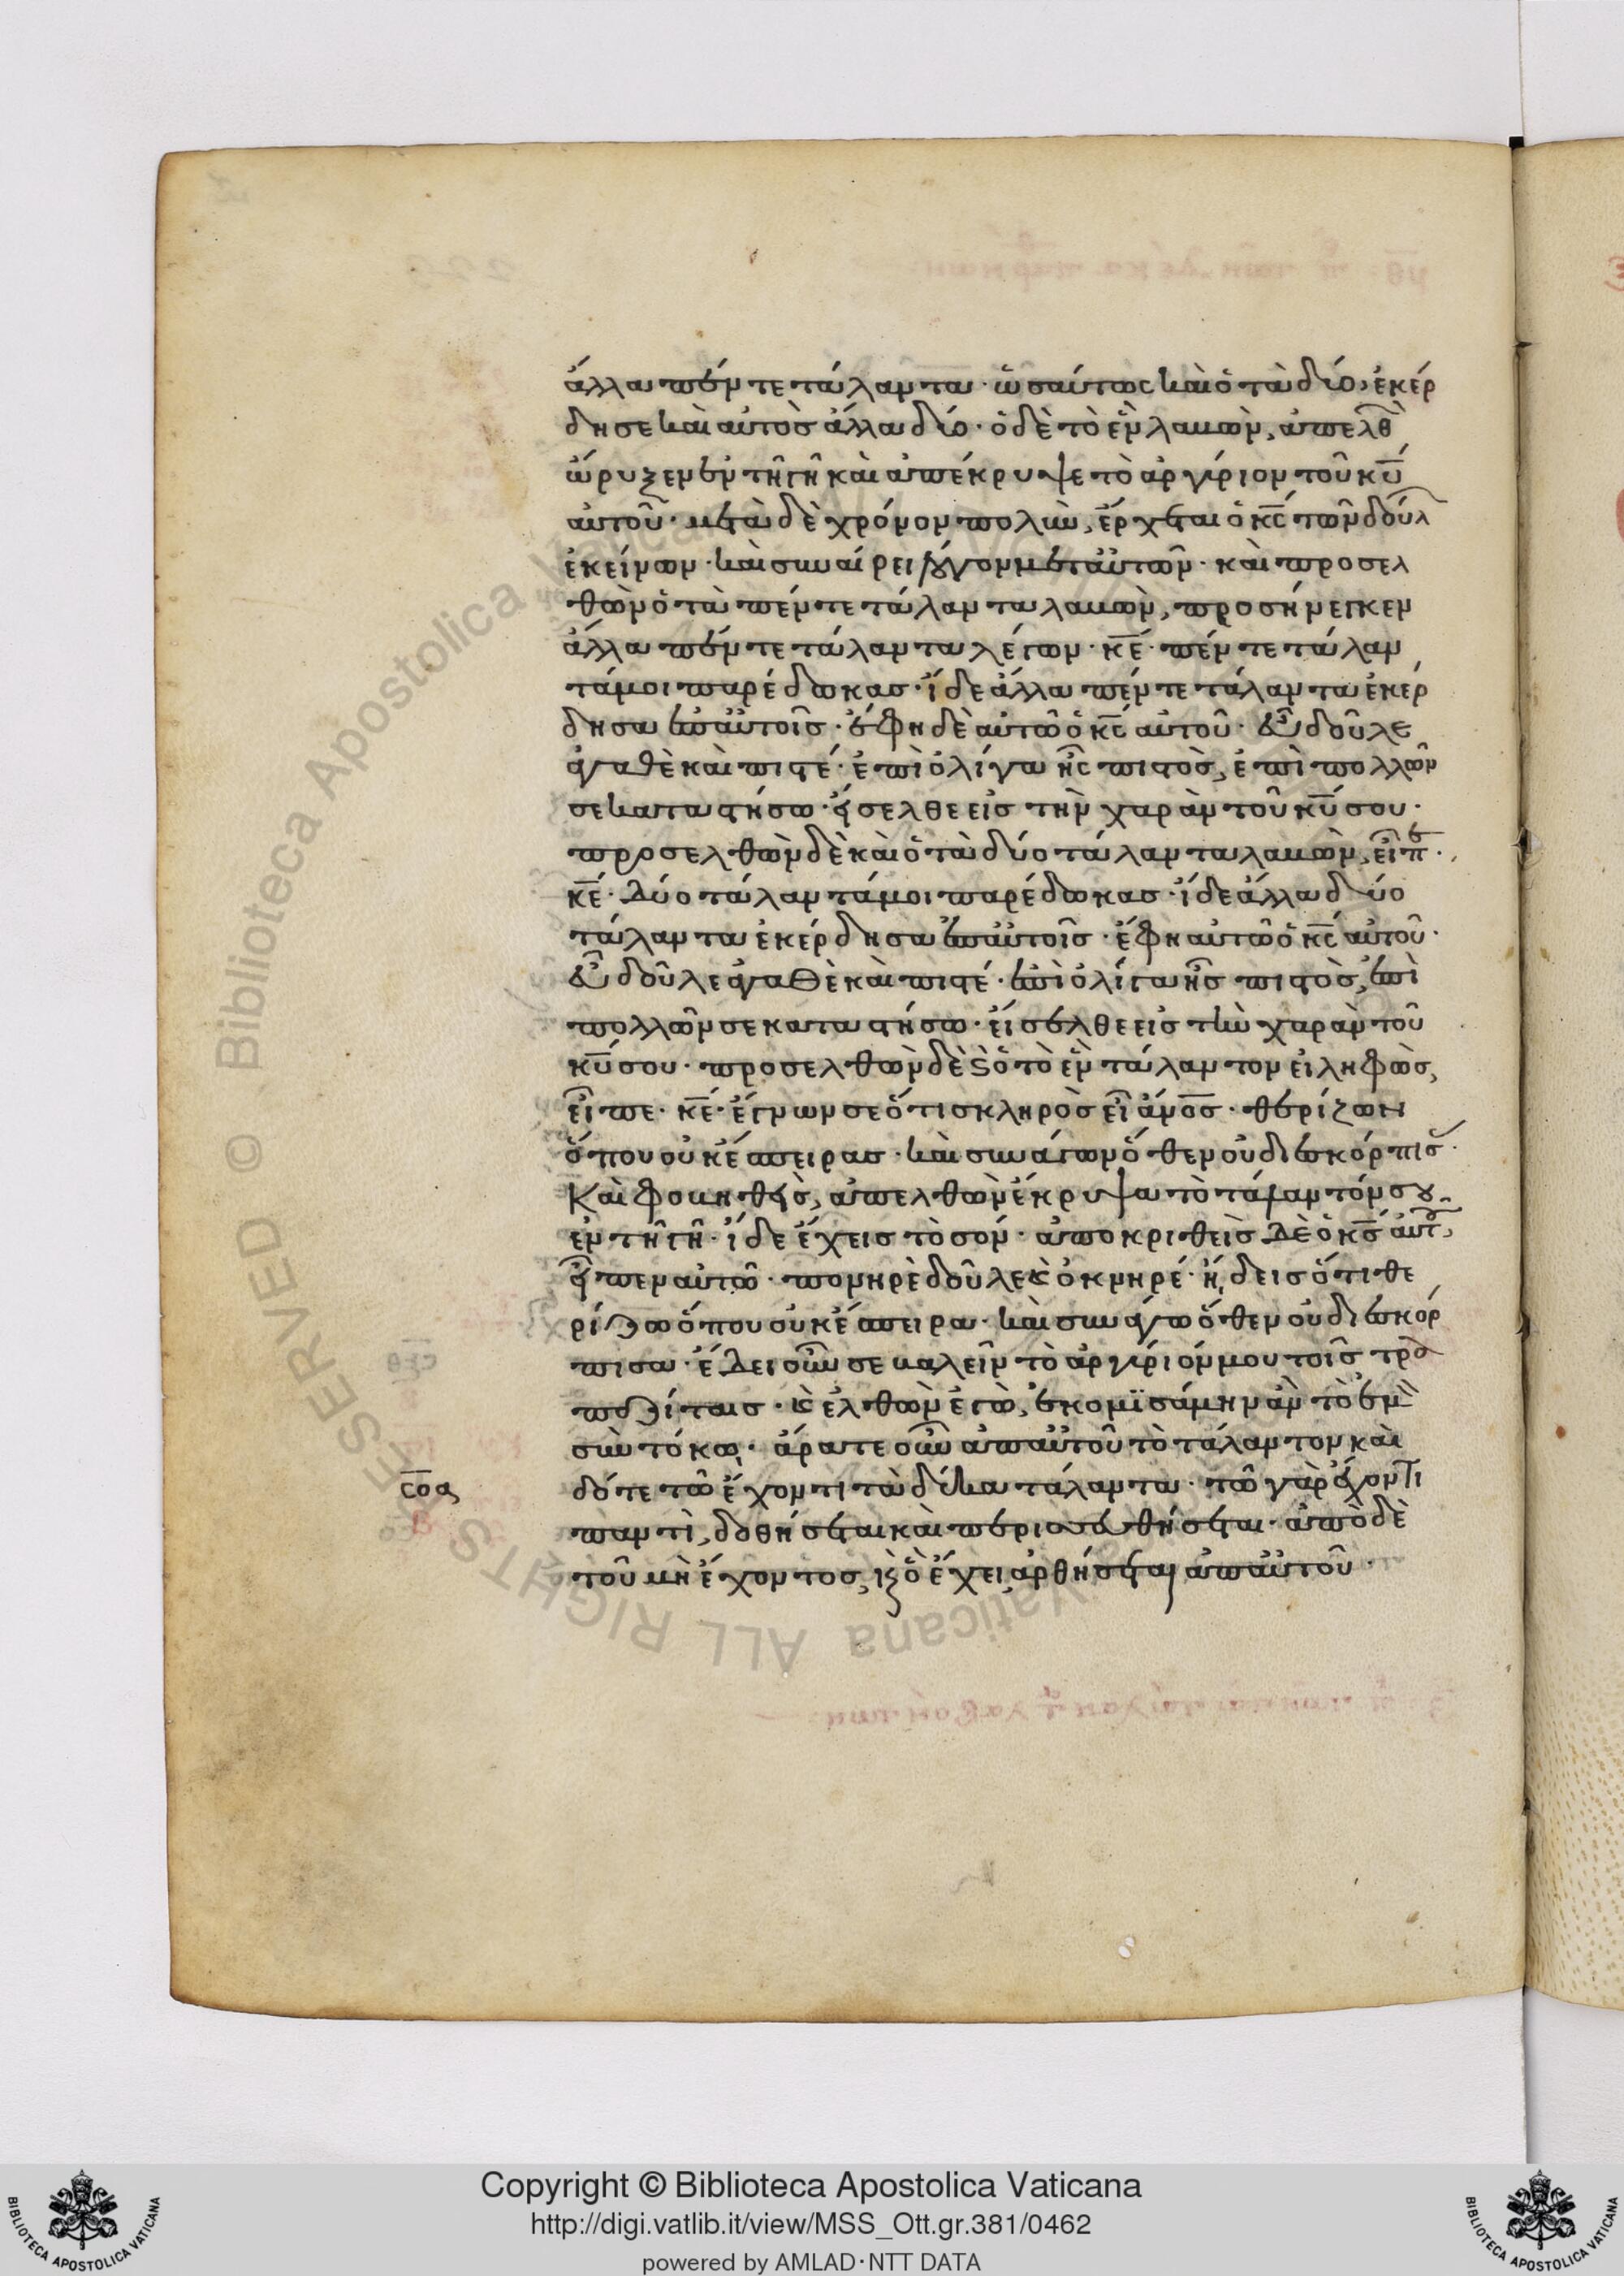 ἄλλα πέντε τάλαντα· ὡσαύτως καὶ ὁ τὰ δύο, ἐκέρ
δησε καὶ αὐτὸς ἄλλα δύο· ὁ δὲ τὸ ἓν λαβὼν, ἀπελθ
ὤρυξεν ἐν τῆ γῆ καὶ ἀπέκρυψε τὸ ἀργύριον τοῦ κυ
αὐτοῦ· μετὰ δὲ χρόνον πολὺν, ἔρχεται ὁ κς τῶν δούλ
ἐκείνων· καὶ συναίρει λόγον μετ αὐτῶν· καὶ προσελ
θὼν ὁ τὰ πέντε τάλαντα λαβὼν, προσήνεγκεν
ἄλλα πέντε τάλαντα λέγων· κε· πέντε τάλαν
τά μοι παρέδωκας· ἴδε ἄλλα πέντε τάλαντα ἐκέρ
δησα ἐπ αὐτοῖς· ἔφη δὲ αὐτῶ ὁ κς αὐτοῦ· εὖ δοῦλε
ἀγαθὲ καὶ πιστέ· ἐπὶ ὀλίγα ἦς πιστὸς, ἐπὶ πολλῶν
σε καταστήσω· εἴσελθε εἰς τὴν χαρὰν τοῦ κυ σου·
προσελθὼν δὲ καὶ ὁ τὰ δύο τάλαντα λαβὼν, εἶπε·
κε· δύο τάλαντά μοι παρέδωκας· ἴδε ἄλλα δύο
τάλαντα ἐκέρδησα ἐπ αὐτοῖς· ἔφη αὐτῶ ὁ κς αὐτοῦ·
εὖ δοῦλε ἀγαθὲ καὶ πιστέ· ἐπὶ ὀλίγα ἦς πιστὸς, ἐπὶ
πολλῶν σε καταστήσω· εἴσελθε εἰς τὴν χαρὰν τοῦ
κυ σου· προσελθὼν δὲ ϗ ὁ τὸ ἓν τάλαντον εἰληφὼς,
εἶπε· κε· ἔγνων σε ὅτι σκληρὸς εἶ ἀνος· θερίζων
ὅπου οὐκ ἔσπειρας· καὶ συνάγων ὅθεν οὐ διεσκόρπισ·
Καὶ φοβηθεὶς, ἀπελθὼν ἔκρυψα τὸ τάλαντόν σου
ἐν τῆ γῆ· ἴδε ἔχεις τὸ σόν· ἀποκριθεὶς δὲ ὁ κς αὐτ,
εἶπεν αὐτῶ· πονηρὲ δοῦλε ϗ ὀκνηρέ· ἤδεις ὅτι θε
ρίζω ὅπου οὐκ ἔσπειρα· καὶ συνάγω ὅθεν οὐ διεσκόρ
πισα· ἔδει οὖν σε βαλεῖν τὸ ἀργύριόν μου τοῖς τρα
πεζίταις· ϗ ἐλθὼν ἐγὼ, ἐκομϊσάμην ἂν τὸ ἐμὸ
σὺν τόκω· ἄρατε οὖν ἀπ αὐτοῦ τὸ τάλαντον καὶ
σοα δότε τῶ ἔχοντι τὰ δέκα τάλαντα· τῶ γὰρ ἔχοντι
παντὶ, δοθήσεται καὶ περισσευθήσεται· ἀπὸ δὲ
τοῦ μὴ ἔχοντος, ϗ ὃ ἔχει, ἀρθήσεται ἀπ αὐτοῦ·
© Biblioteca Apostolica Vaticana ALL RIGHTS RESERVED
Copyright © Biblioteca Apostolica Vaticana
http://digi.vatlib.it/view/MSS_Ott.gr.381/0462
powered by AMLAD·NTT DATA
BIBLIOTECA APOSTOLICA VATICANA
BIBLIOTECA APOSTOLICA VATICANA